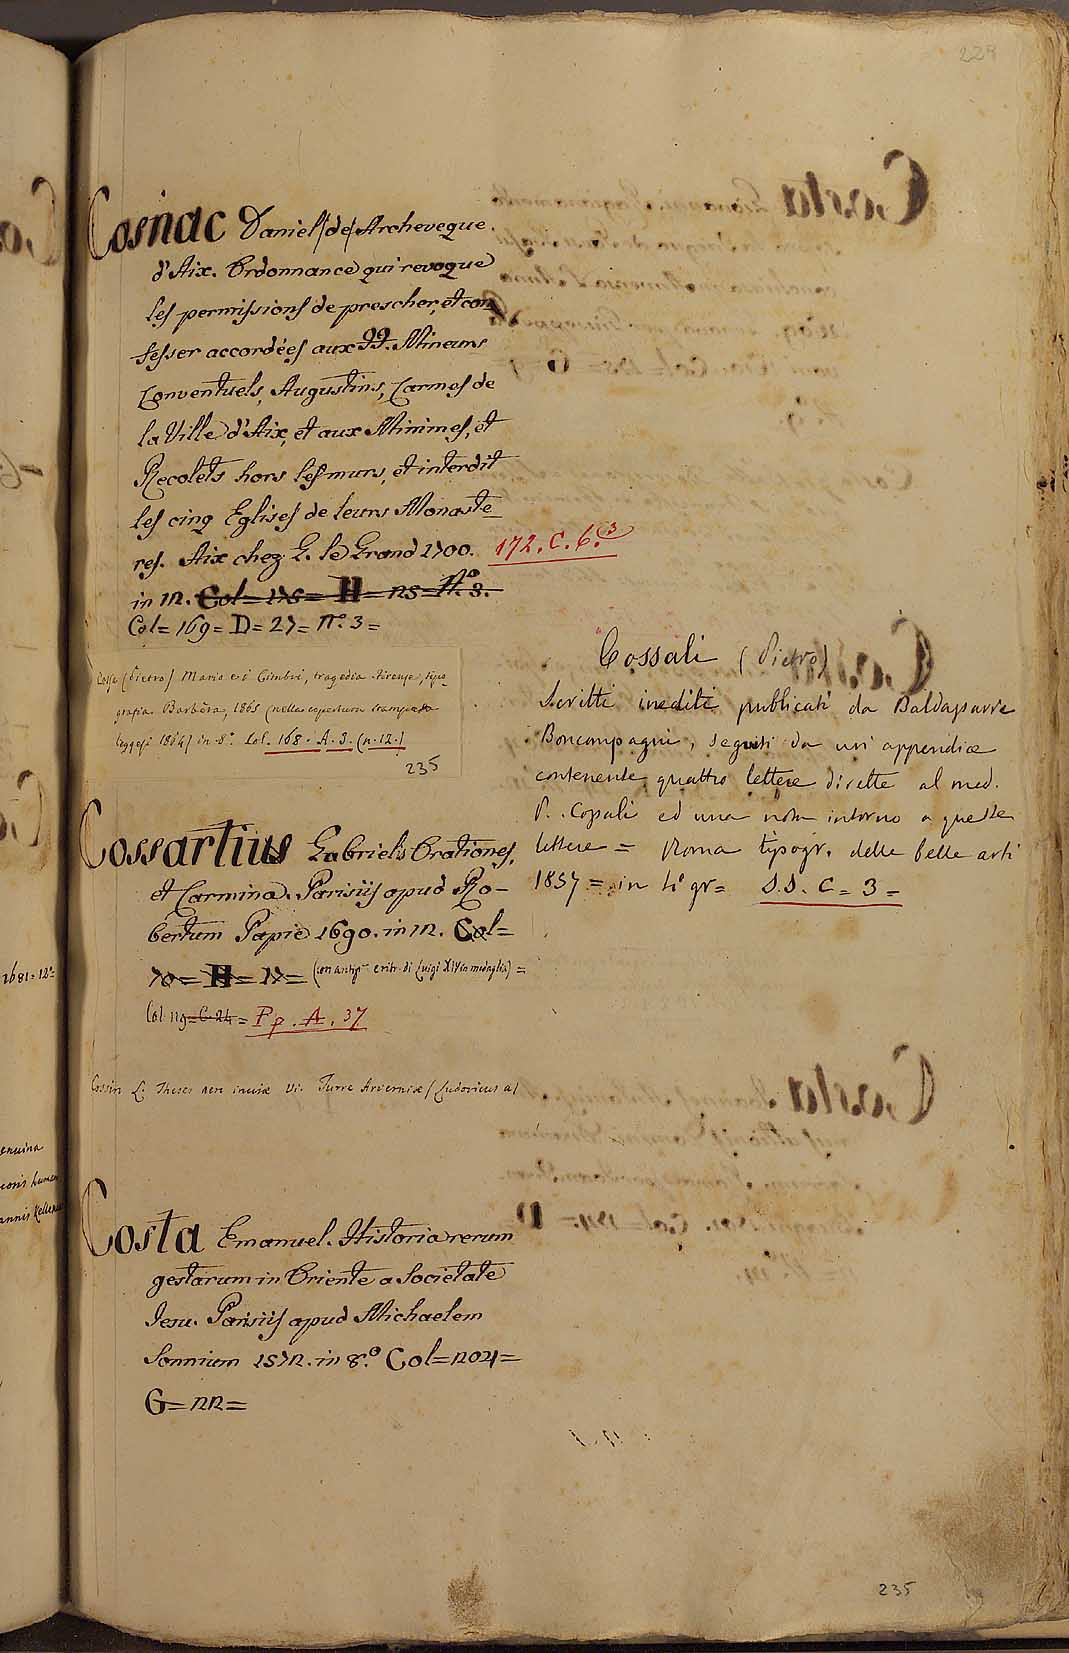 229
Cosnac Daniel (de) Archeveque
d'Aix. Ordonnance qui revoque
les permissions de prescher, et con
fesser accordées aux PP. Mineurs
Conventuels, Augustins, Carmes de
la Ville d'Aix, et aux Minimes, et
Recolets hors les murs, et interdit
les cinq Eglises de leurs Monaste_
res. Aix chez G. le Grand 1700. 172. C. 6.3
in 12. Col= 178= H= 25= N.o 3.
Col= 169= D= 27= N.o 3=
Cossa (Pietro) Mario e i Cimbri, tragedia. Firenze, tipo_
grafia Barbèra, 1865 (nella copertura stampata
leggesi 1864) in 8.o Col. 168. A. 3. (n. 12.)
235
Cossartius Gabrielis Orationes,
et Carmina. Parisiis apud Ro-
bertum Pepie 1690. in 12. Col=
70= H= 17= (con antip. e ritr. di Luigi XIV in medaglia) =
Col 119= C 24= Pp. A. 37
Cossin L. Theses Vi. Turre Arverniæ (Ludovicus a)
Costa Emanuel. Historia rerum
gestarum in Oriente a Societate
Iesu. Parisiis apud Michaelem
Sonnium 1572. in 8.o Col=204=
G= 22=
Cossali (Pietro)
Scritti inediti publicati da Baldassarre
Boncompagni, seguiti da un' appendice
contenente quattro lettere dirette al med.
P. Cossali ed una nota intorno a queste
lettere = Roma tipogr. delle belle arti
1857 = in 4o gr= S.S. C= 3=
1681= 12o=
enuina
annis Kelle
235